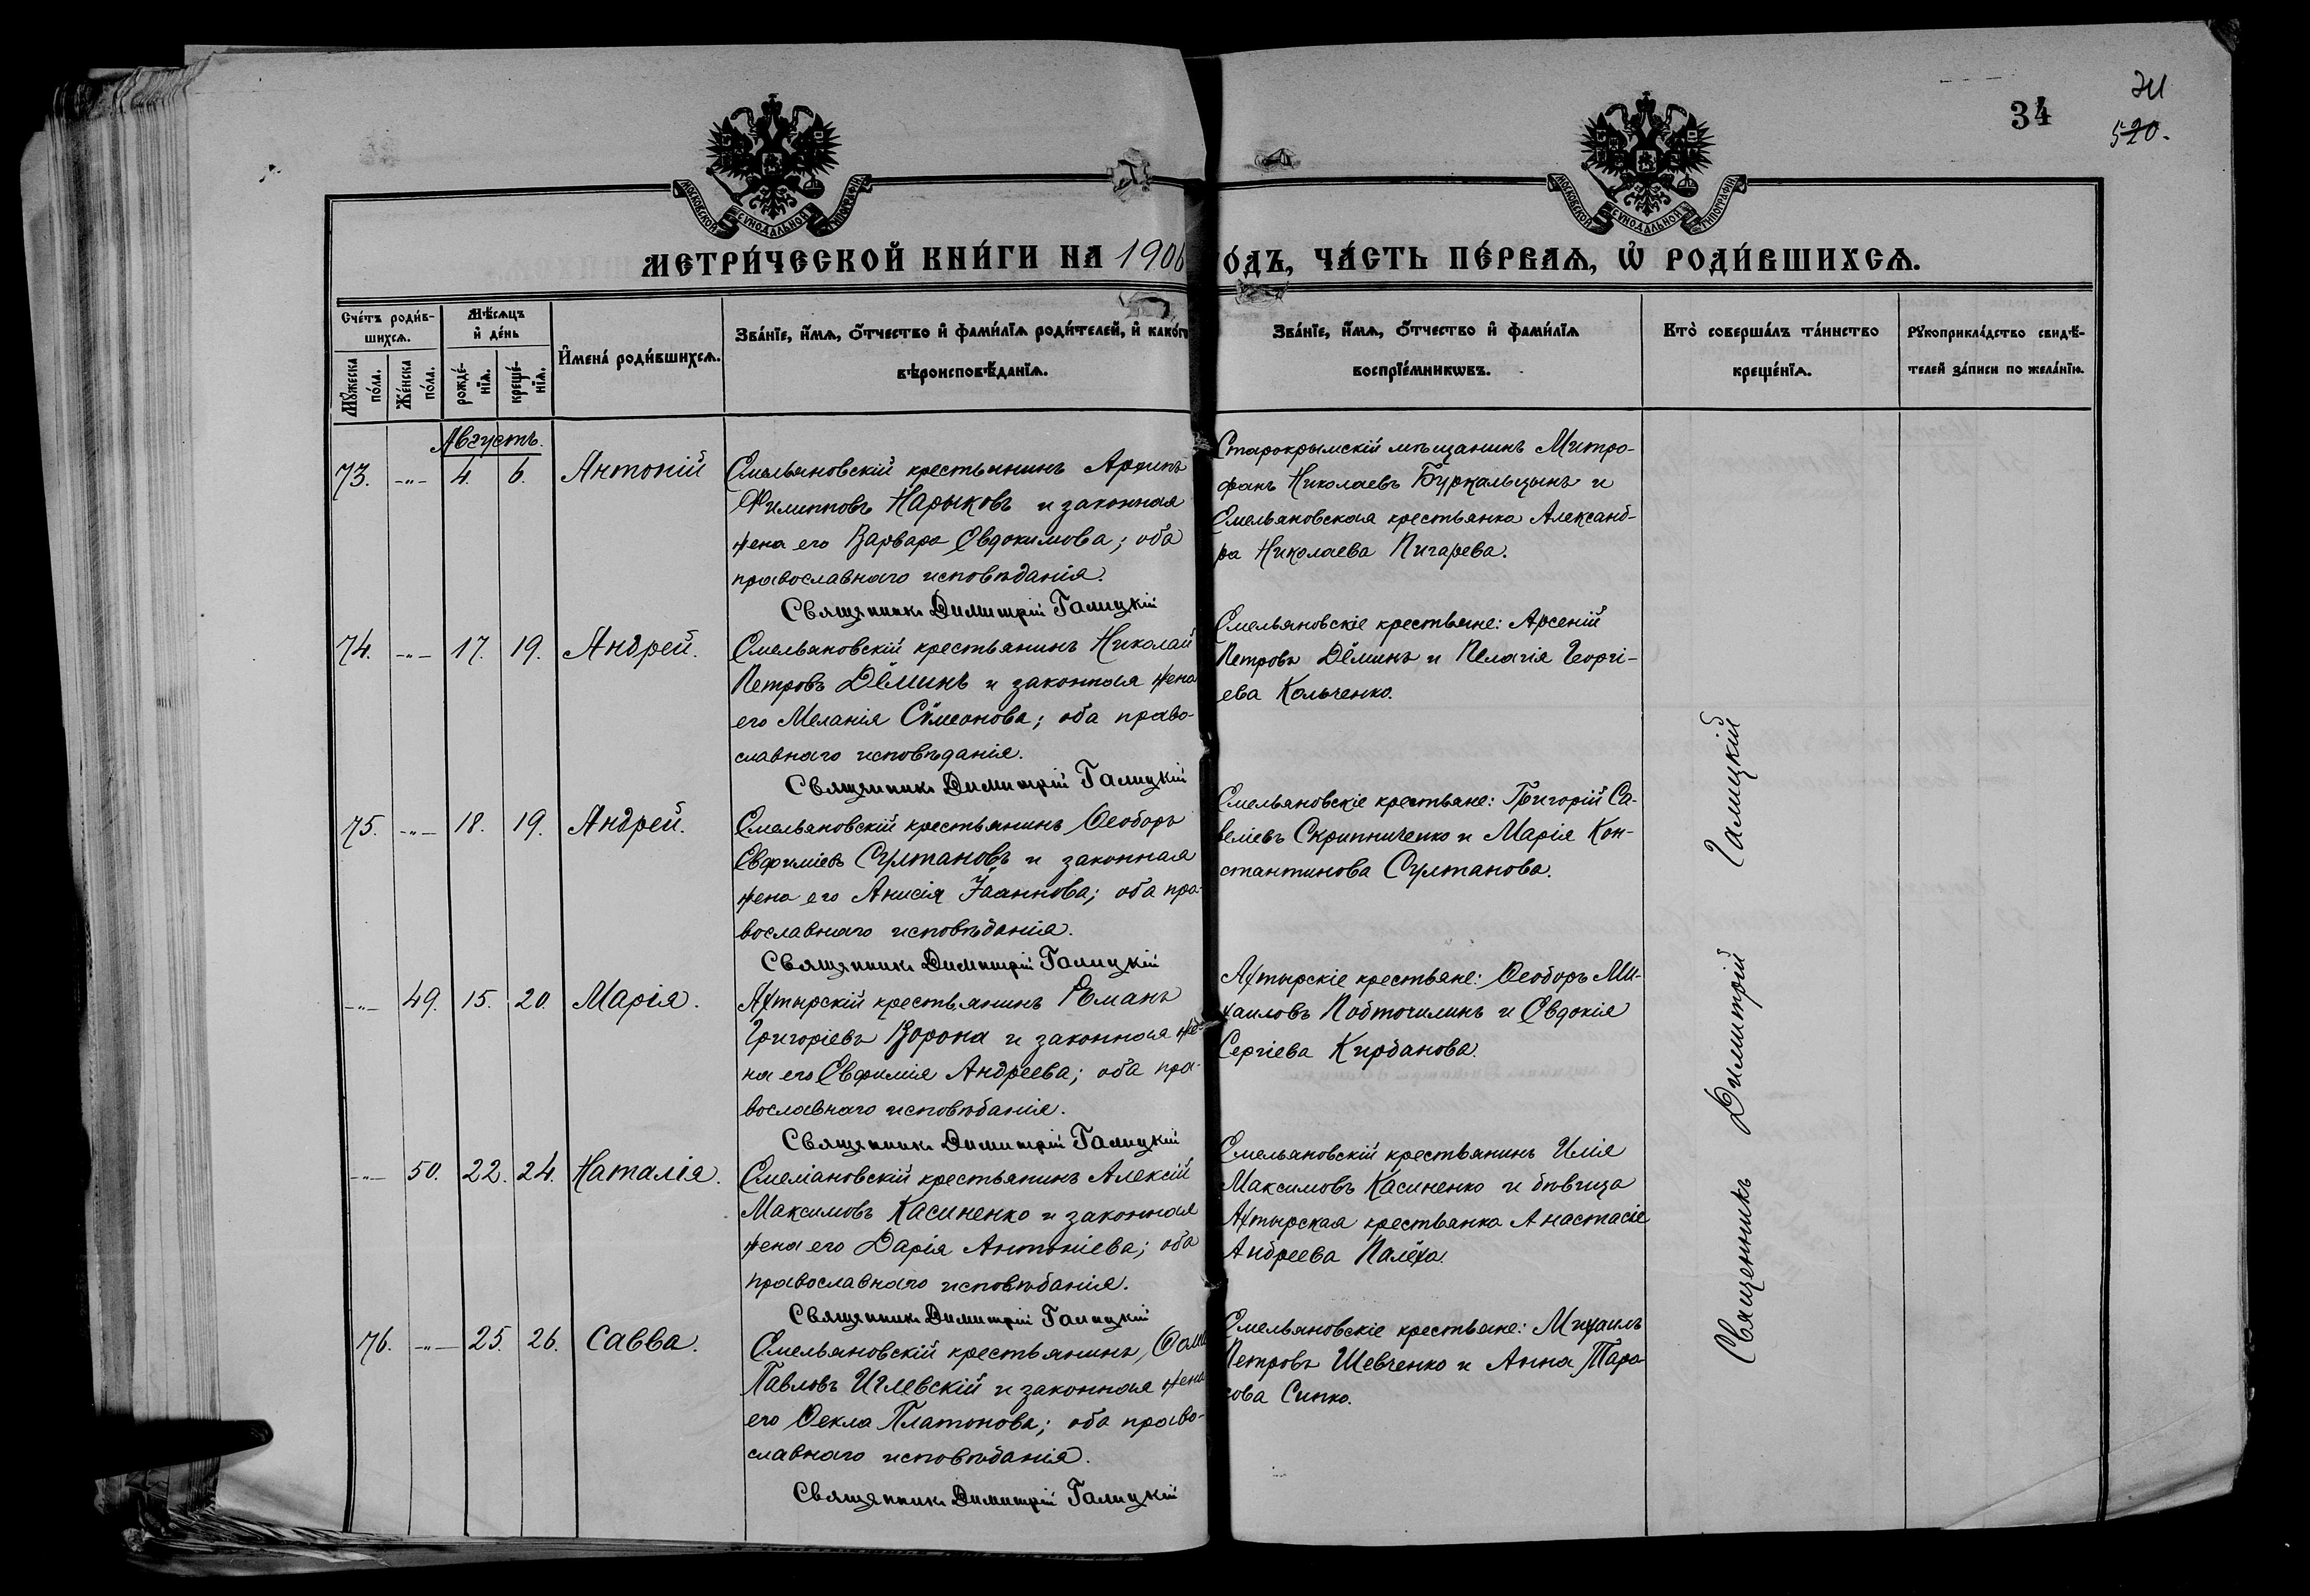 34
520.
МОСКОВСКОЙ СѴНОДАЛЬНОЙ ТИПОГРАФІИ
МОСКОВСКОЙ СѴНОДАЛЬНОЙ ТИПОГРАФІИ
МЕТРИ́ЧЕСКОЙ КНИ́ГИ НА 1906
О́ДЪ, ЧА́СТЬ ПЕ́РВАѦ, Ѡ҆ РОДИ́ВШИХСѦ.
Сче́тъ роди́в-
шихсѧ.
Мꙋ́жеска по́ла.
Же́нска по́ла.
Мѣ́сѧцъ
и҆ де́нь
рожде́-
нїѧ.
креще́-
нїѧ.
И҆мена̀ роди́вшихсѧ.
Зва́нїе, и҆́мѧ, ѻ҆́тчество и҆ фами́лїѧ роди́телей, и҆ како́гѡ
вѣроисповѣ́данїѧ.
Зва́нїе, и҆́мѧ, ѻ҆́тчество и҆ фами́лїѧ
воспрїе́мникѡвъ.
Кто̀ соверша́лъ та́инство
креще́нїѧ.
Рꙋкоприкла́дство свидѣ́-
телей за́писи по жела́нїю.
Августъ.
73. -"- 4. 6. Антоній
Емельяновскій крестьянинъ Архипъ
Филипповъ Нарыковъ и законная
жена его Варвара Евдокимова; оба
православнаго исповѣданія.
Священникъ Димитрій Галицкій
Старокрымскій мѣщанинъ Митро-
фанъ Николаевъ Буркальцынъ и
Емельяновская крестьянка Александ-
ра Николаева Пигарева.
74. -"- 17. 19. Андрей.
Емельяновскій крестьянинъ Николай
Петровъ Дёминъ и законная жена
его Меланія Сѵмеонова; оба право-
славнаго исповѣданія.
Священникъ Димитрій Галицкій
Емельяновскіе крестьяне: Арсеній
Петровъ Дёминъ и Пелагія Георгі-
ева Кольченко.
75. -"- 18. 19. Андрей.
Емельяновскій крестьянинъ Ѳеодоръ
Евфиміевъ Султановъ и законная
жена его Анисія Іоаннова; оба пра-
вославнаго исповѣданія.
Священникъ Димитрій Галицкій
Емельяновскіе крестьяне: Григорій Са-
веліевъ Скрипниченко и Марія Кон-
стантинова Султанова.
-"- 49. 15. 20. Марія.
Ахтырскій крестьянинъ Романъ
Григоріевъ Ворона и законная же-
на его Евфимія Андреева; оба пра-
вославнаго исповѣданія.
Священникъ Димитрій Галицкій
Ахтырскіе крестьяне: Ѳеодоръ Ми-
хаиловъ Подточилинъ и Евдокія
Сергіева Кирданова.
-"- 50. 22. 24. Наталія.
Емеліановскій крестьянинъ Алексій
Максимовъ Касиненко и законная
жена его Дарія Антоніева; оба
православнаго исповѣданія.
Священникъ Димитрій Галицкій
Емельяновскій крестьянинъ Илія
Максимовъ Касиненко и дѣвица
Ахтырская крестьянка Анастасія
Андреева Палёха.
76. -"- 25. 26. Савва.
Емельяновскій крестьянинъ
Павловъ Иглевскій и законная жена
его Ѳекла Платонова; оба право-
славнаго исповѣданія.
Священникъ Димитрій Галицкій
Емельяновскіе крестьяне: Михаилъ
Петровъ Шевченко и Анна Тара-
сова Сипко.
Священникъ Димитрій Галицкій